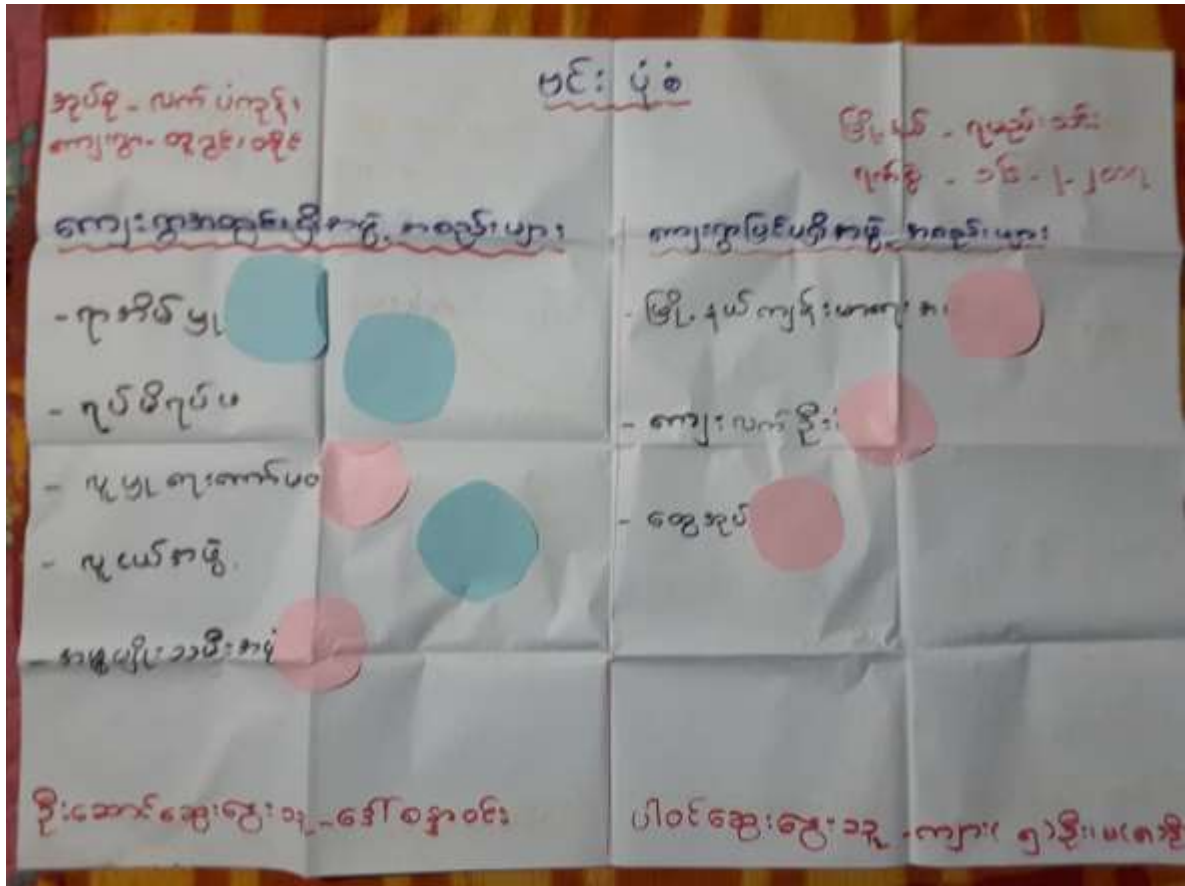 ဗင်းပုံစံ
အုပ်စု - လက်ပံကုန်း
ကျေးရွာ -
မြို့နယ် - ရမည်းသင်း
ရက်စွဲ -
ကျေးရွာအတွင်းရှိအဖွဲ့အစည်းများ
- ရာအိမ်မှူး
- ရပ်မိရပ်ဖ
- လူမှုရေးကော်မတီ
- လူငယ်အဖွဲ့
အမျိုးသမီးအဖွဲ့
ကျေးရွာပြင်ပရှိအဖွဲ့အစည်းများ
- မြို့နယ်ကျန်းမာရေး
- ကျေးလက်ဦး
- ထွေအုပ်
ဦးဆောင်ဆွေးနွေးသူ - ဒေါ်စန္ဒာဝင်း
ပါဝင်ဆွေးနွေးသူ - ကျား(၅)ဦး၊ မ